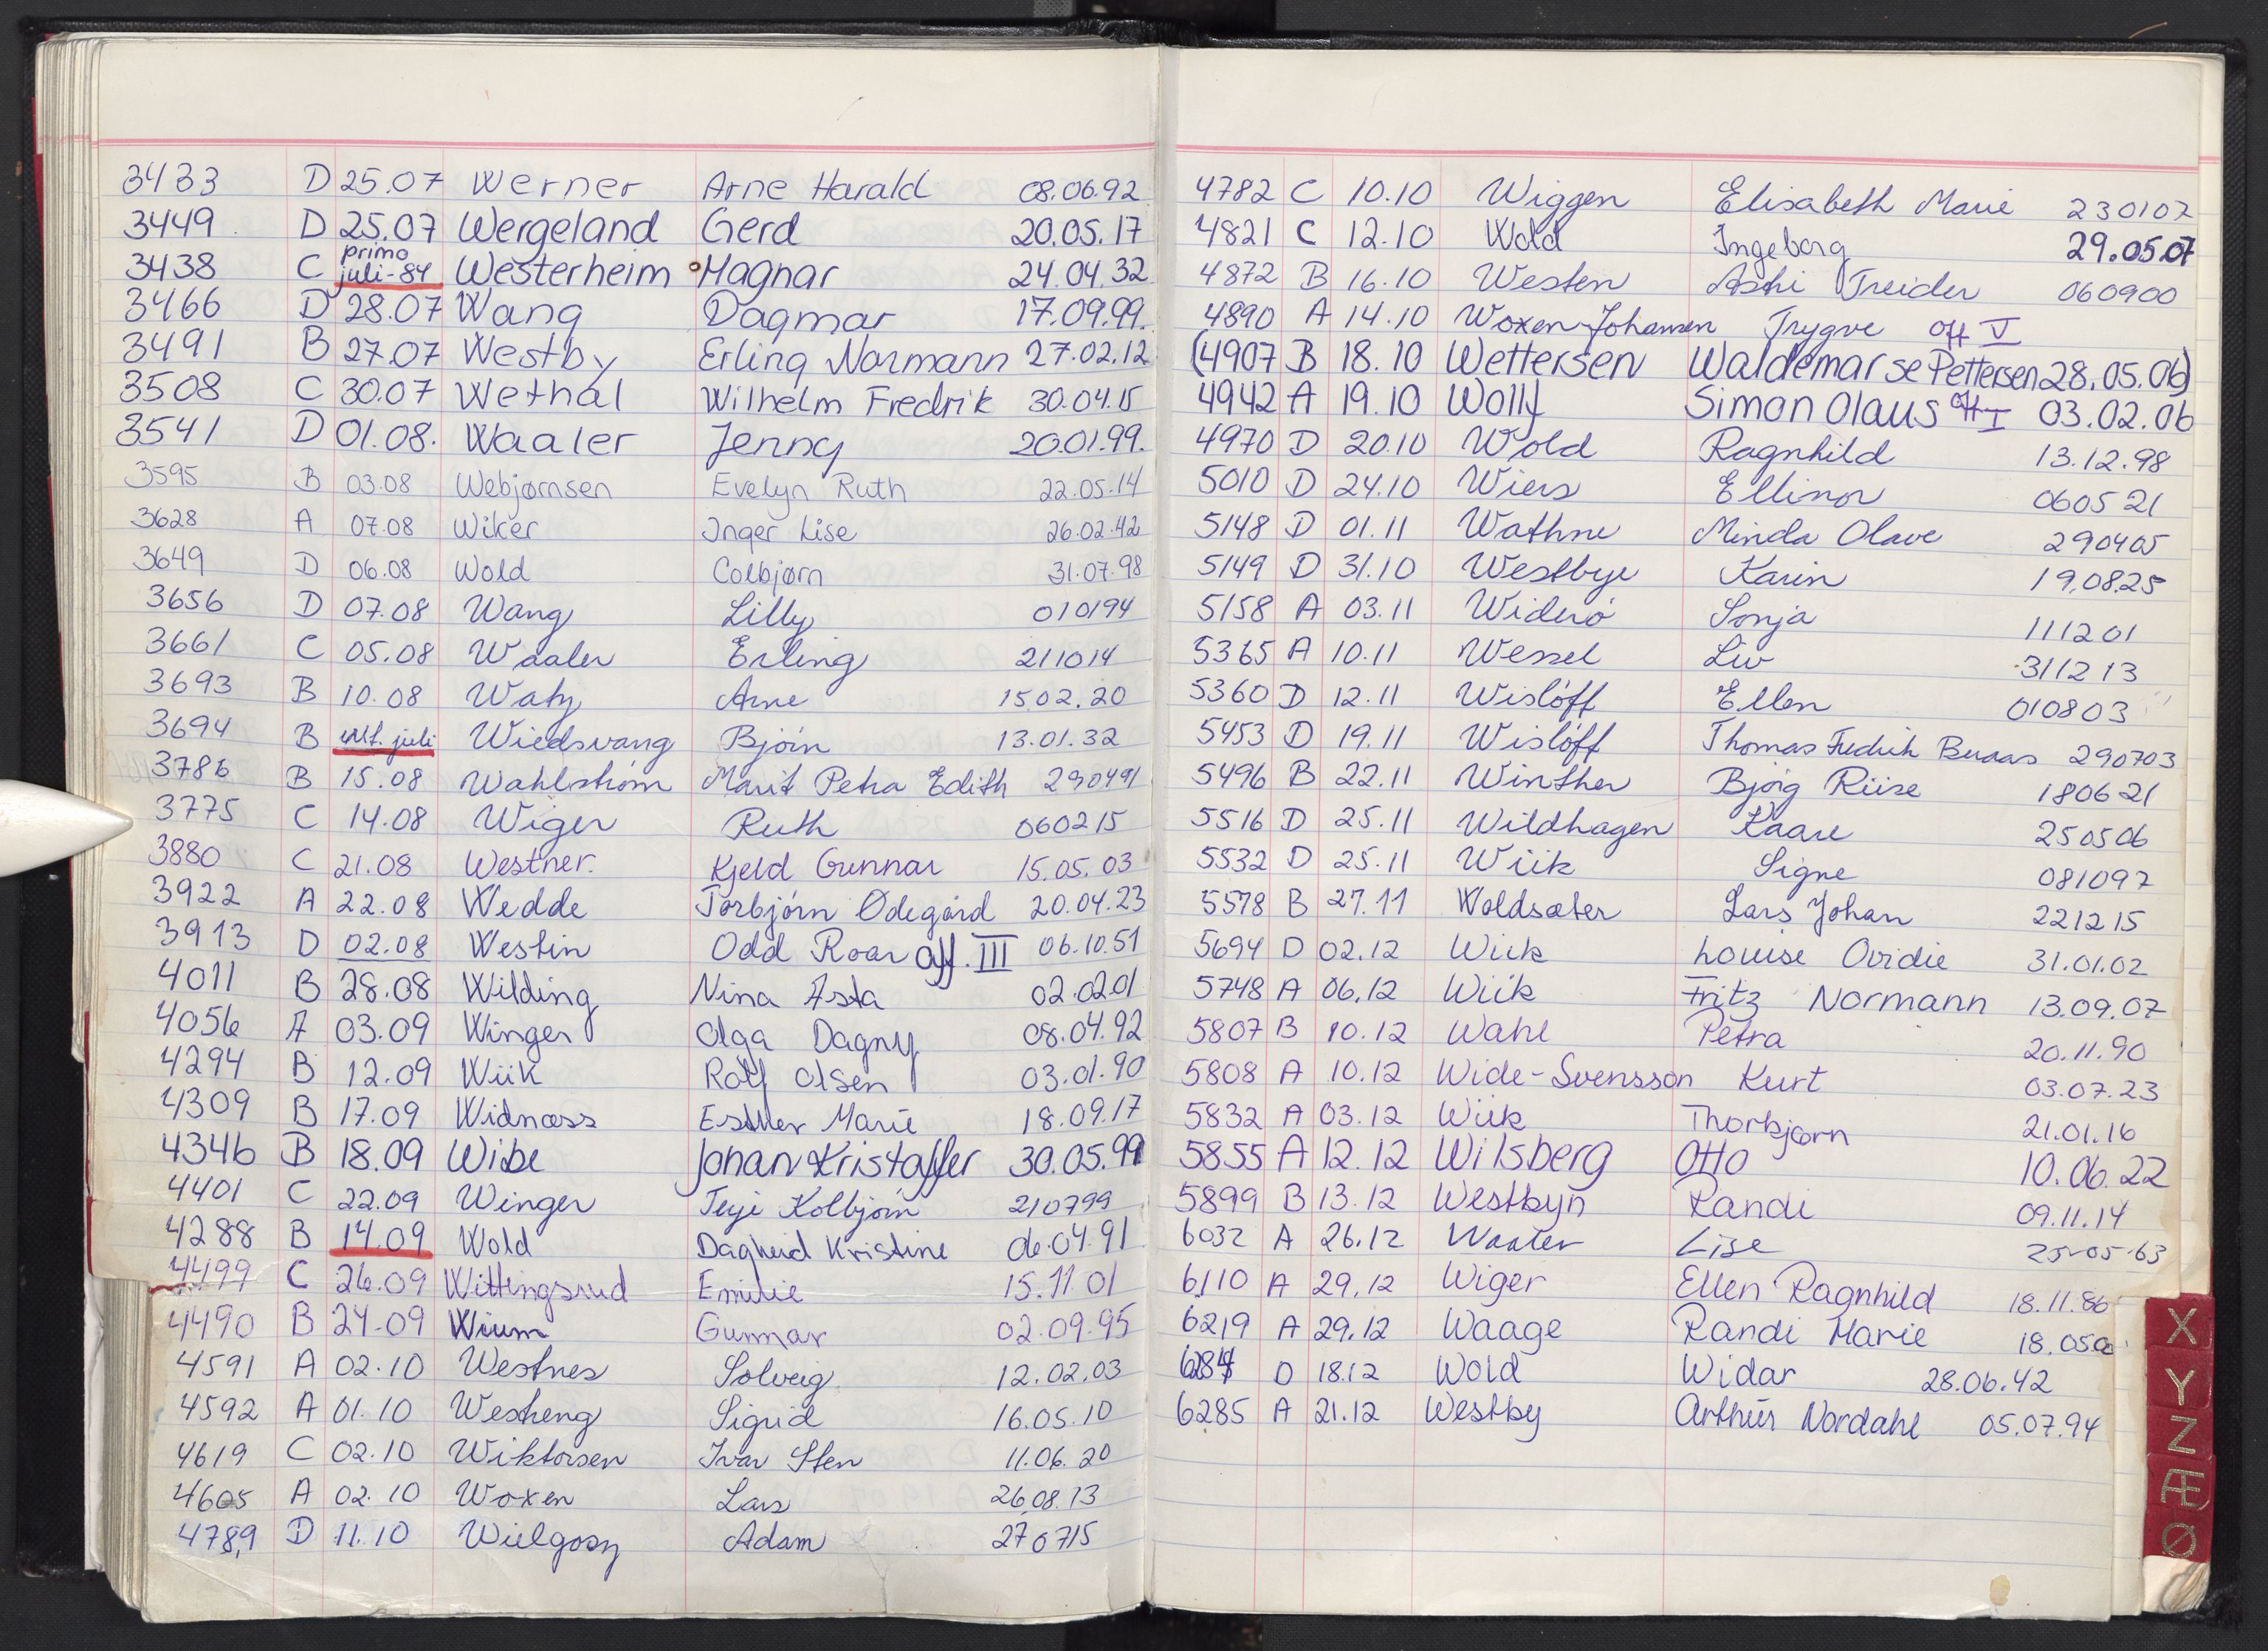 3433 D 25.07 Werner Arne Harald 08.06.92
3449 D 25.07 Wergeland Gerd 20.05.17
primo
3438 C juli-84 Westerheim Magnar 24.04.32
3466 D 28.07 Wang Dagmar 17.09.99.
3491 B 27.07 Westby Erling Normann 27.02.12
3508 C 30.07 Wethal Wilhelm Fredrik 30.04.15
3541 D 01.08. Waaler Jenny 20.01.99.
3595 B 03.08 Webjørnsen Evelyn Ruth 22.05.14
3628 A 07.08 Wiker Inger Lise 26.02.42
3649 D 06.08 Wold Colbjørn 31.07.98
3656 D 07.08 Wang Lilly 010194
3661 C 05.08 Waaler Erling 211014
3693 B 10.08 Waty Arne 15.02.20
3694 B juli Wiedsvang Bjørn 13.01.32
3786 B 15.08 Wahlstrøm Marit Petra Edith 290491
3775 C 14.08 Wiger Ruth 060215
3880 C 21.08 Westner. Kjeld Gunnar 15.05.03
3922 A 22.08 Wedde Torbjørn Ødegård 20.04.23
3913 D 02.08 Westin Odd Roar off. III 06.10.51
4011 B 28.08 Wilding Nina Asta 02.02.01
4056 A 03.09 Winger Olga Dagny 08.04.92
4294 B 12.09 Wiik Rolf Olsen 03.01.90
4309 B 17.09 Widnæss Esther Marie 18.09.17
4346 B 18.09 Wibe Johan Kristoffer 30.05.99
4401 C 22.09 Winger Terje Kolbjørn 210799
4288 B 14.09 Wold Dagheid Kristine 06.04.91
4499 C 26.09 Wittingsrud Emilie 15.11 01
4490 B 24.09 Wium Gunnar 02.09.95
4591 A 02.10 Westnes Solveig 12.02.03
4592 A 01.10 Westreng Sigrid 16.05.10
4619 C 02.10 Wiktorsen Ivar Sten 11.06.20
4605 A 02.10 Woxen Lars 26.08.13
4789 D 11.10 Wielgosz Adam 270715
4782 C 10.10 Wiggen Elisabeth Marie 230107
4821 C 12.10 Wold Ingeborg 29.05.07
4872 B 16.10 Westen Astri Treider 060900
4890 A 14.10 Woxen-Johansen Trygve off V
(4907 B 18.10 Wettersen Waldemar se Pettersen 28.05.06)
4942 A 19.10 Wolff Simon Olaus off I 03.02.06
4970 D 20.10 Wold Ragnhild 13.12.98
5010 D 24.10 Wiers Ellinor 060521
5148 D 01.11 Wathne Minda Olave 290405
5149 D 31.10 Westbye Karin 19.0825
5158 A 03.11 Widerø Sonja 111201
5365 A 10.11 Wessel Liv 311213
5360 D 12.11 Wisløff Ellen 010803
5453 D 19.11 Wisløff Thomas Fredrik Buaas 290703
5496 B 22.11 Winther Bjørg Riise 180621
5516 D 25.11 Wildhagen Kaare 250506
5532 D 25.11 Wiik Signe 081097
5578 B 27.11 Woldsæter Lars Johan 221215
5694 D 02.12 Wiik Louise Ovidie 31.01.02
5748 A 06.12 Wiik Fritz Normann 13.09.07
5807 B 10.12 Wahl Petra 20.11.90
5808 A 10.12 Wide-Svensson Kurt 03.07.23
5832 A 03.12 Wiik Thorbjørn 21.01.16
5855 A 12.12 Wilsberg Otto 10.06.22
5899 B 13.12 Westbyn Randi 09.11.14
6032 A 26.12 Waater Lise 25.05.63
6110 A 29.12 Wiger Ellen Ragnhild 18.11.86
6219 A 29.12 Waage Randi Marie 18.05.
6284 D 18.12 Wold Widar 28.06.42
6285 A 21.12 Westby Arthur Nordahl 05.07.94
X
Y
Z
Æ
Ø